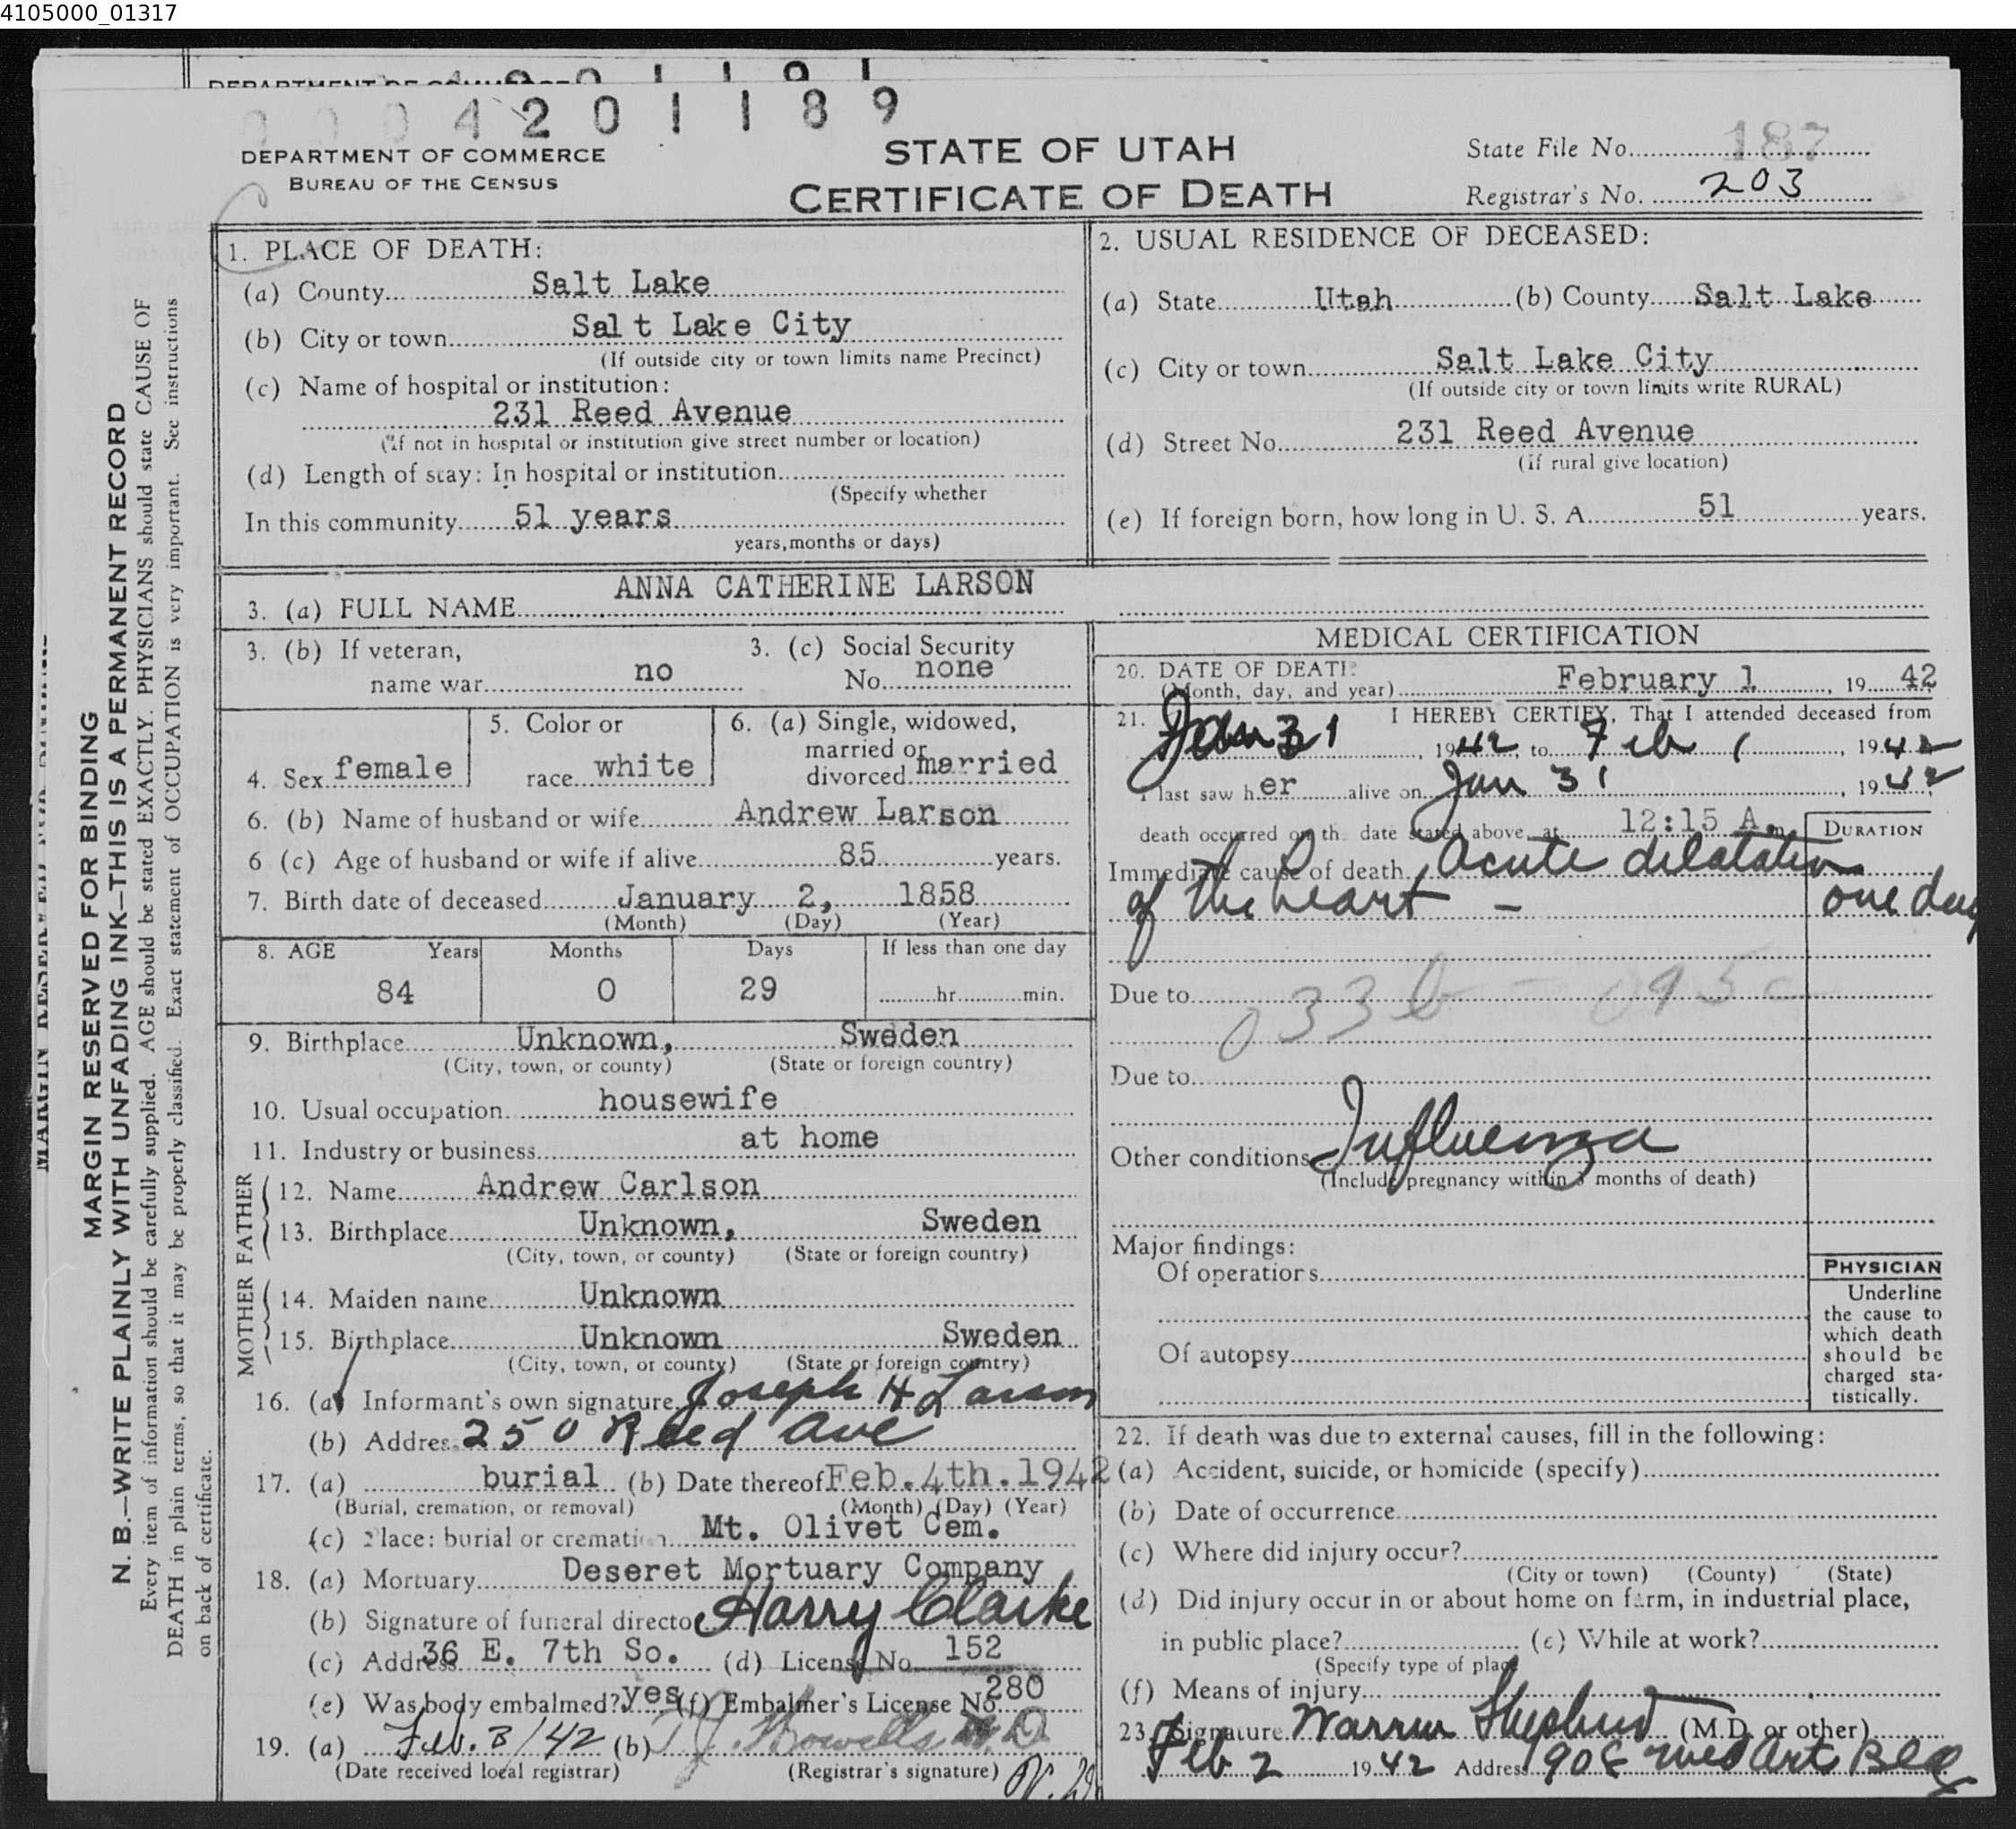 4105000_01317
DEPARTMENT OF COMMERCE
0004201189
DEPARTMENT OF COMMERCE
BUREAU OF THE CENSUS
STATE OF UTAH
CERTIFICATE OF DEATH
State File No. 187
Registrar's No. 203
MARGIN RESERVED FOR BINDING
N. B.—WRITE PLAINLY WITH UNFADING INK—THIS IS A PERMANENT RECORD
Every item of information should be carefully supplied. AGE should be stated EXACTLY. PHYSICIANS should state CAUSE OF
DEATH in plain terms, so that it may be properly classified. Exact statement of OCCUPATION is very important. See instructions
on back of certificate.
1. PLACE OF DEATH:
(a) County Salt Lake
(b) City or town Salt Lake City
(If outside city or town limits name Precinct)
(c) Name of hospital or institution:
231 Reed Avenue
(If not in hospital or institution give street number or location)
(d) Length of stay: In hospital or institution
(Specify whether
In this community 51 years
years, months or days)
2. USUAL RESIDENCE OF DECEASED:
(a) State Utah (b) County Salt Lake
(c) City or town Salt Lake City
(If outside city or town limits write RURAL)
(d) Street No. 231 Reed Avenue
(if rural give location)
(e) If foreign born, how long in U. S. A. 51 years.
3. (a) FULL NAME ANNA CATHERINE LARSON
3. (b) If veteran,
name war no
3. (c) Social Security
No. none
4. Sex female
5. Color or
race white
6. (a) Single, widowed,
married or
divorced married
6. (b) Name of husband or wife Andrew Larson
6 (c) Age of husband or wife if alive 85 years.
7. Birth date of deceased January 2, 1858
(Month) (Day) (Year)
8. AGE Years Months Days If less than one day
84 0 29 hr. min.
9. Birthplace Unknown, Sweden
(City, town, or county) (State or foreign country)
10. Usual occupation housewife
11. Industry or business at home
FATHER
12. Name Andrew Carlson
13. Birthplace Unknown, Sweden
(City, town, or county) (State or foreign country)
MOTHER
14. Maiden name Unknown
15. Birthplace Unknown Sweden
(City, town, or county) (State or foreign country)
16. (a) Informant's own signature Joseph H Larson
(b) Address 250 Reed Ave
17. (a) burial (b) Date thereof Feb. 4th. 1942
(Burial, cremation, or removal) (Month) (Day) (Year)
(c) Place: burial or cremation Mt. Olivet Cem.
18. (a) Mortuary Deseret Mortuary Company
(b) Signature of funeral director Harry Clarke
(c) Address 36 E. 7th So. (d) License No. 152
(e) Was body embalmed? yes (f) Embalmer's License No. 280
19. (a) Feb. 3/42 (b) T. J. Howells M.D.
(Date received local registrar) (Registrar's signature)
MEDICAL CERTIFICATION
20. DATE OF DEATH:
(Month, day, and year) February 1, 1942
21. I HEREBY CERTIFY, That I attended deceased from
Jan 31, 1942, to Feb 1, 1942
I last saw her alive on Jan 31, 1942
death occurred on the date stated above, at 12:15 A.m.
DURATION
Immediate cause of death Acute dilatation
of the heart – one day
Due to 033b – 095c
Due to
Other conditions Influenza
(Include pregnancy within 3 months of death)
Major findings:
Of operations
Of autopsy
PHYSICIAN
Underline
the cause to
which death
should be
charged sta-
tistically.
22. If death was due to external causes, fill in the following:
(a) Accident, suicide, or homicide (specify)
(b) Date of occurrence
(c) Where did injury occur?
(City or town) (County) (State)
(d) Did injury occur in or about home on farm, in industrial place,
in public place? (e) While at work?
(Specify type of place
(f) Means of injury
23. Signature Warren Shepherd (M.D. or other)
Feb 2 1942 Address 908 Med Arts Bldg